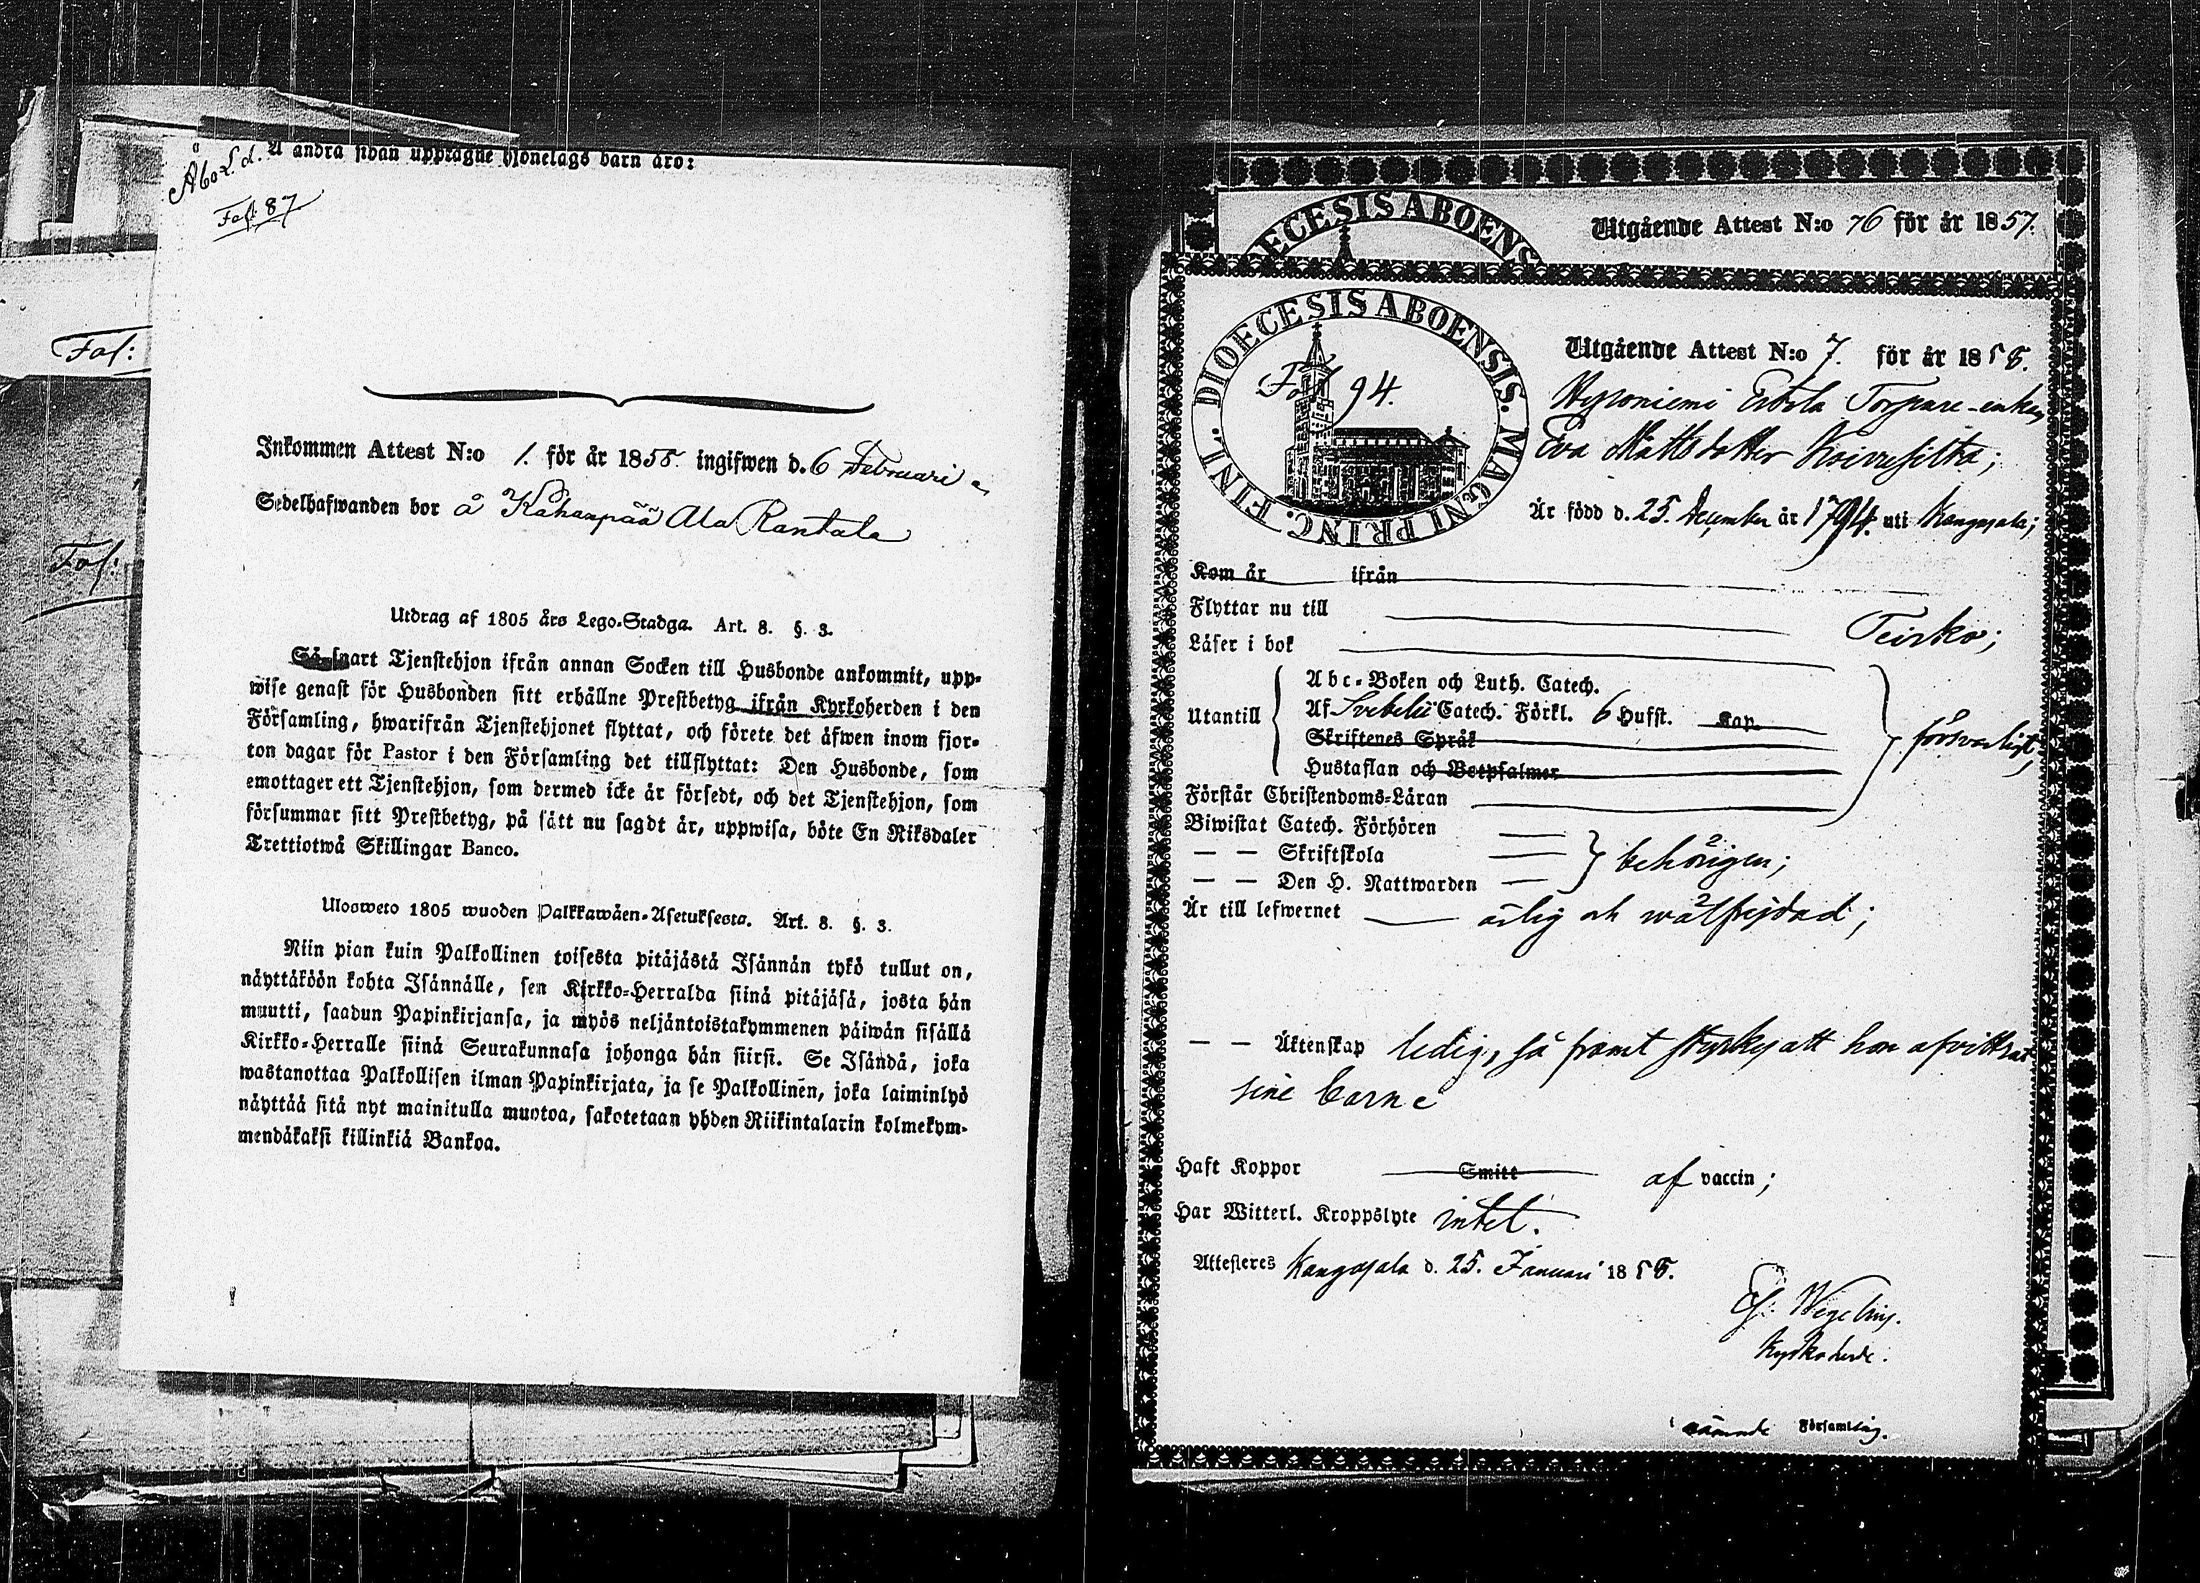 Åbo L. d. Å andra sidan upptagne Hjonelags barn äro:
Fol. 87
Fol:
Fol:
Inkommen Attest N:o 1. för år 1858. ingifwen d. 6 Februari
Sedelhafwanden bor å Kähanpää Ala Rantala
Utdrag af 1805 års Lego-Stadga. Art. 8. §. 3.
Så snart Tjenstehjon ifrån annan Socken till Husbonde ankommit, upp-
wise genast för Husbonden sitt erhållne Prestbetyg ifrån Kyrkoherden i den
Församling, hwarifrån Tjenstehjonet flyttat, och förete det äfwen inom fjor-
ton dagar för Pastor i den Församling det tillflyttat: Den Husbonde, som
emottager ett Tjenstehjon, som dermed icke är försedt, och det Tjenstehjon, som
försummar sitt Prestbetyg, på sätt nu sagdt är, uppwisa, böte En Riksdaler
Trettiotwå Skillingar Banco.
Ulosweto 1805 wuoden Palkkawäen-Asetuksesta. Art. 8. §. 3.
Niin pian kuin Palkollinen toisesta pitäjästä Isännän tykö tullut on,
näyttäköön kohta Isännälle, sen Kirkko-Herralda siinä pitäjäsä, josta hän
muutti, saadun Papinkirjansa, ja myös neljäntoistakymmenen päiwän sisällä
Kirkko-Herralle siinä Seurakunnasa johonga hän siirsi. Se Isändä, joka
wastanottaa Palkollisen ilman Papinkirjata, ja se Palkollinen, joka laiminlyö
näyttää sitä nyt mainitulla muotoa, sakotetaan yhden Riikintalarin kolmekym-
mendäkaksi killinkiä Bankoa.
DIOECESIS ABOENSIS
Utgående Attest N:o 76 för år 1857.
DIOECESIS ABOENSIS. MAGNI PRINC. FINL.
Fol 94.
Utgående Attest N:o 7. för år 1858.
Hyroniemi Erkola Torpare-enkan
Eva Mattsdotter Koivusilta;
Är född d. 25. December år 1794. uti Kangasala;
Kom år ifrån
Flyttar nu till Teisko;
Läser i bok
Utantill
Abc-Boken och Luth. Catech.
Af Svebelii Catech. Förkl. 6 Hufst. Kap.
Skriftenes Språk
Hustaflan och Botpsalmer
försvarligt;
Förstår Christendoms-Läran
Biwistat Catech. Förhören
— — Skriftskola
— — Den H. Nattwarden
behörigen;
Är till lefwernet ärlig och wälfrejdad;
— — Äktenskap ledig, så framt styrkes att hon afvittrat
sine barn
Haft Koppor Smitt af vaccin;
Har Witterl. Kroppslyte intet.
Attesteras Kangasala d. 25. Januari 1858.
Wegelius.
Kyrkoherde.
i nämnde Församling.